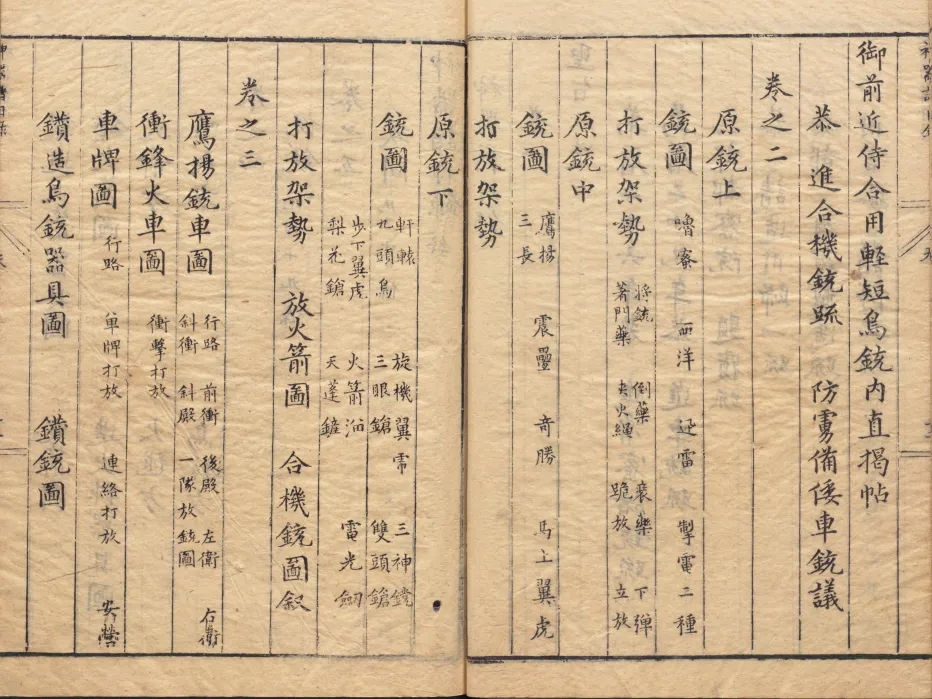 御前近侍合用輕短鳥銃内直揭帖
恭進合機銃疏 防虜備倭車銃議
卷之二
原銃上
銃圖 嚕嘧 西洋 迅雷 掣電二種
打放架勢 将銃 倒藥 裝藥 下弹
著門藥 夾火繩 跪放 立放
原銃中
銃圖 鷹揚 震疊 竒勝 馬上翼虎
三長
打放架勢
原銃下
銃圖 軒轅 旋機翼虎 三神鏜
九頭鳥 三眼鎗 雙頭鎗
步下翼虎 火箭溜 電光劒
梨花鎗 天蓬鏟
打放架勢 放火箭圖 合機銃圖叙
卷之三
鷹揚銃車圖 行路 前衝 後殿 左衛 右衛
斜衝 斜殿 一隊放銃圖
衝鋒火車圖 衝擊打放
車牌圖 行路 單牌打放 連絡打放 安營
鑚造鳥銃器具圖 鑚銃圖